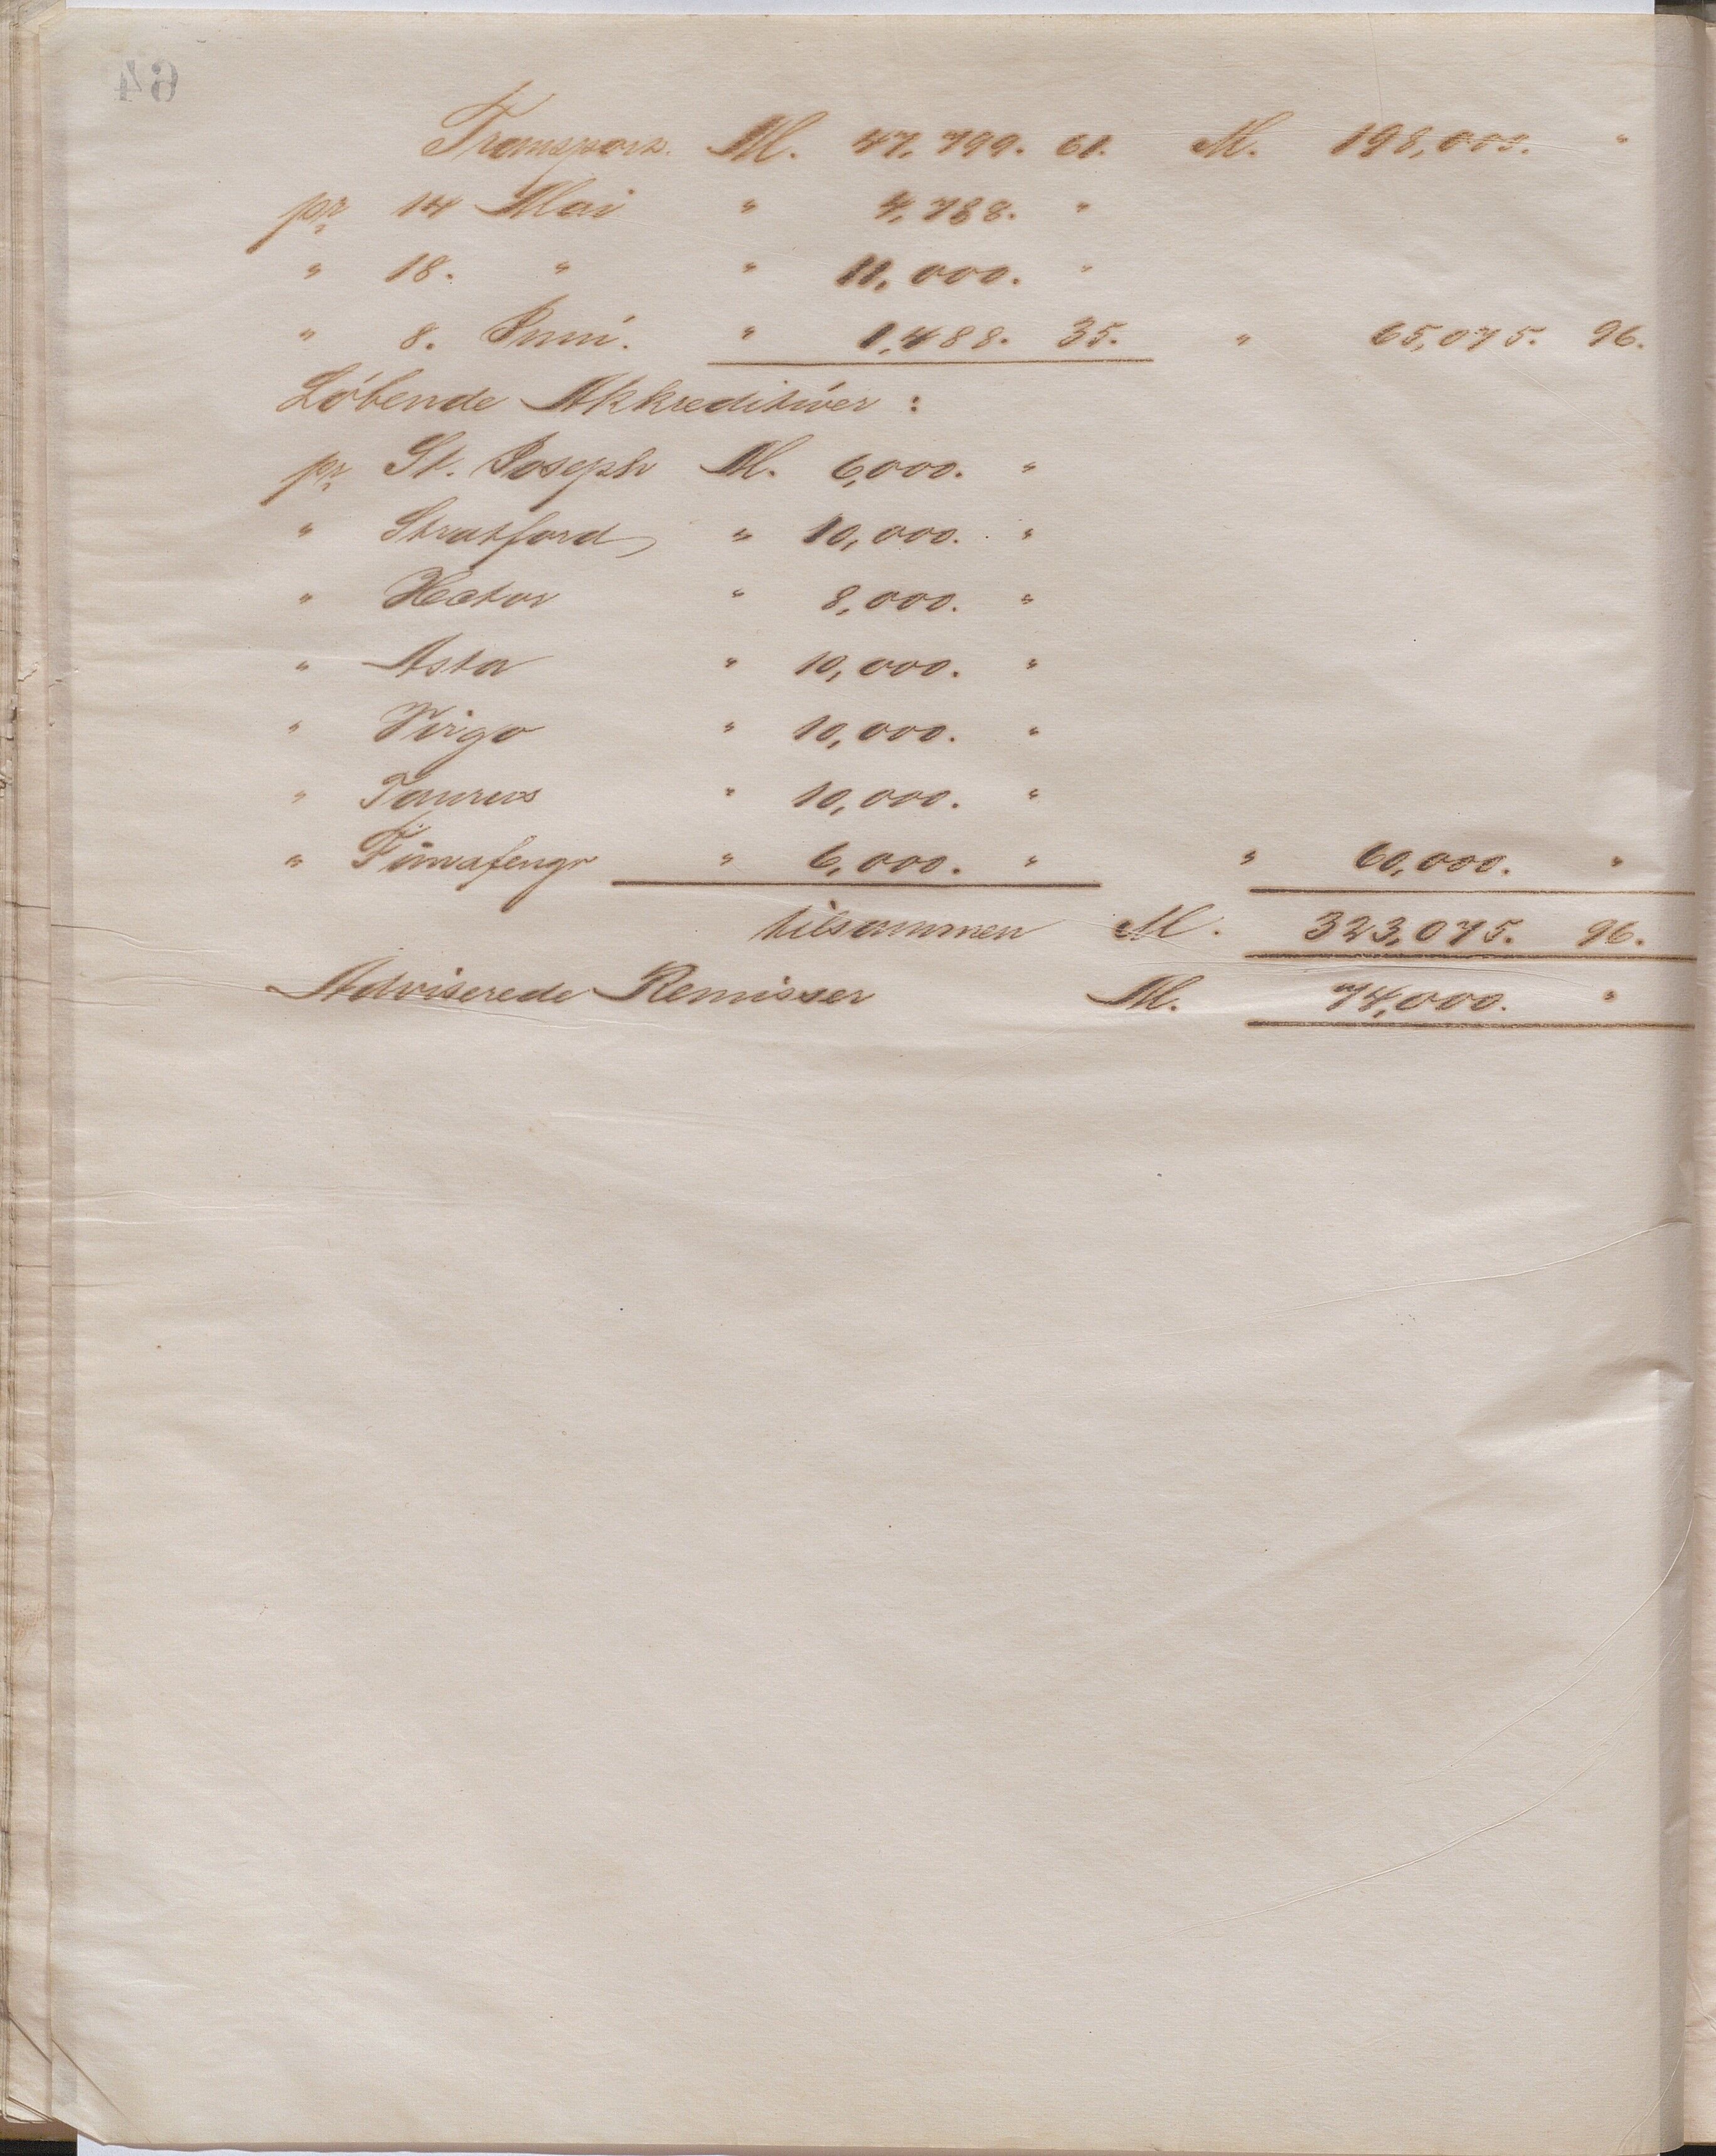 64
Transport. M. 47,799. 61. M. 198,000. "
pr 14 Mai " 4,788. "
" 18. " " 11,000. "
" 8. Juni. " 1,488. 35. " 65,075. 96.
Löbende Akkreditiver :
pr. St. Joseph M. 6,000. "
" Stratford " 10,000. "
" Hector " 8,000. "
" Asta " 10,000. "
" Virgo " 10,000. "
" Taurus " 10,000. "
" Fimafengr " 6,000. " " 60,000. "
tilsammen M. 323,075. 96.
Adviserede Remisser M. 74,000. "